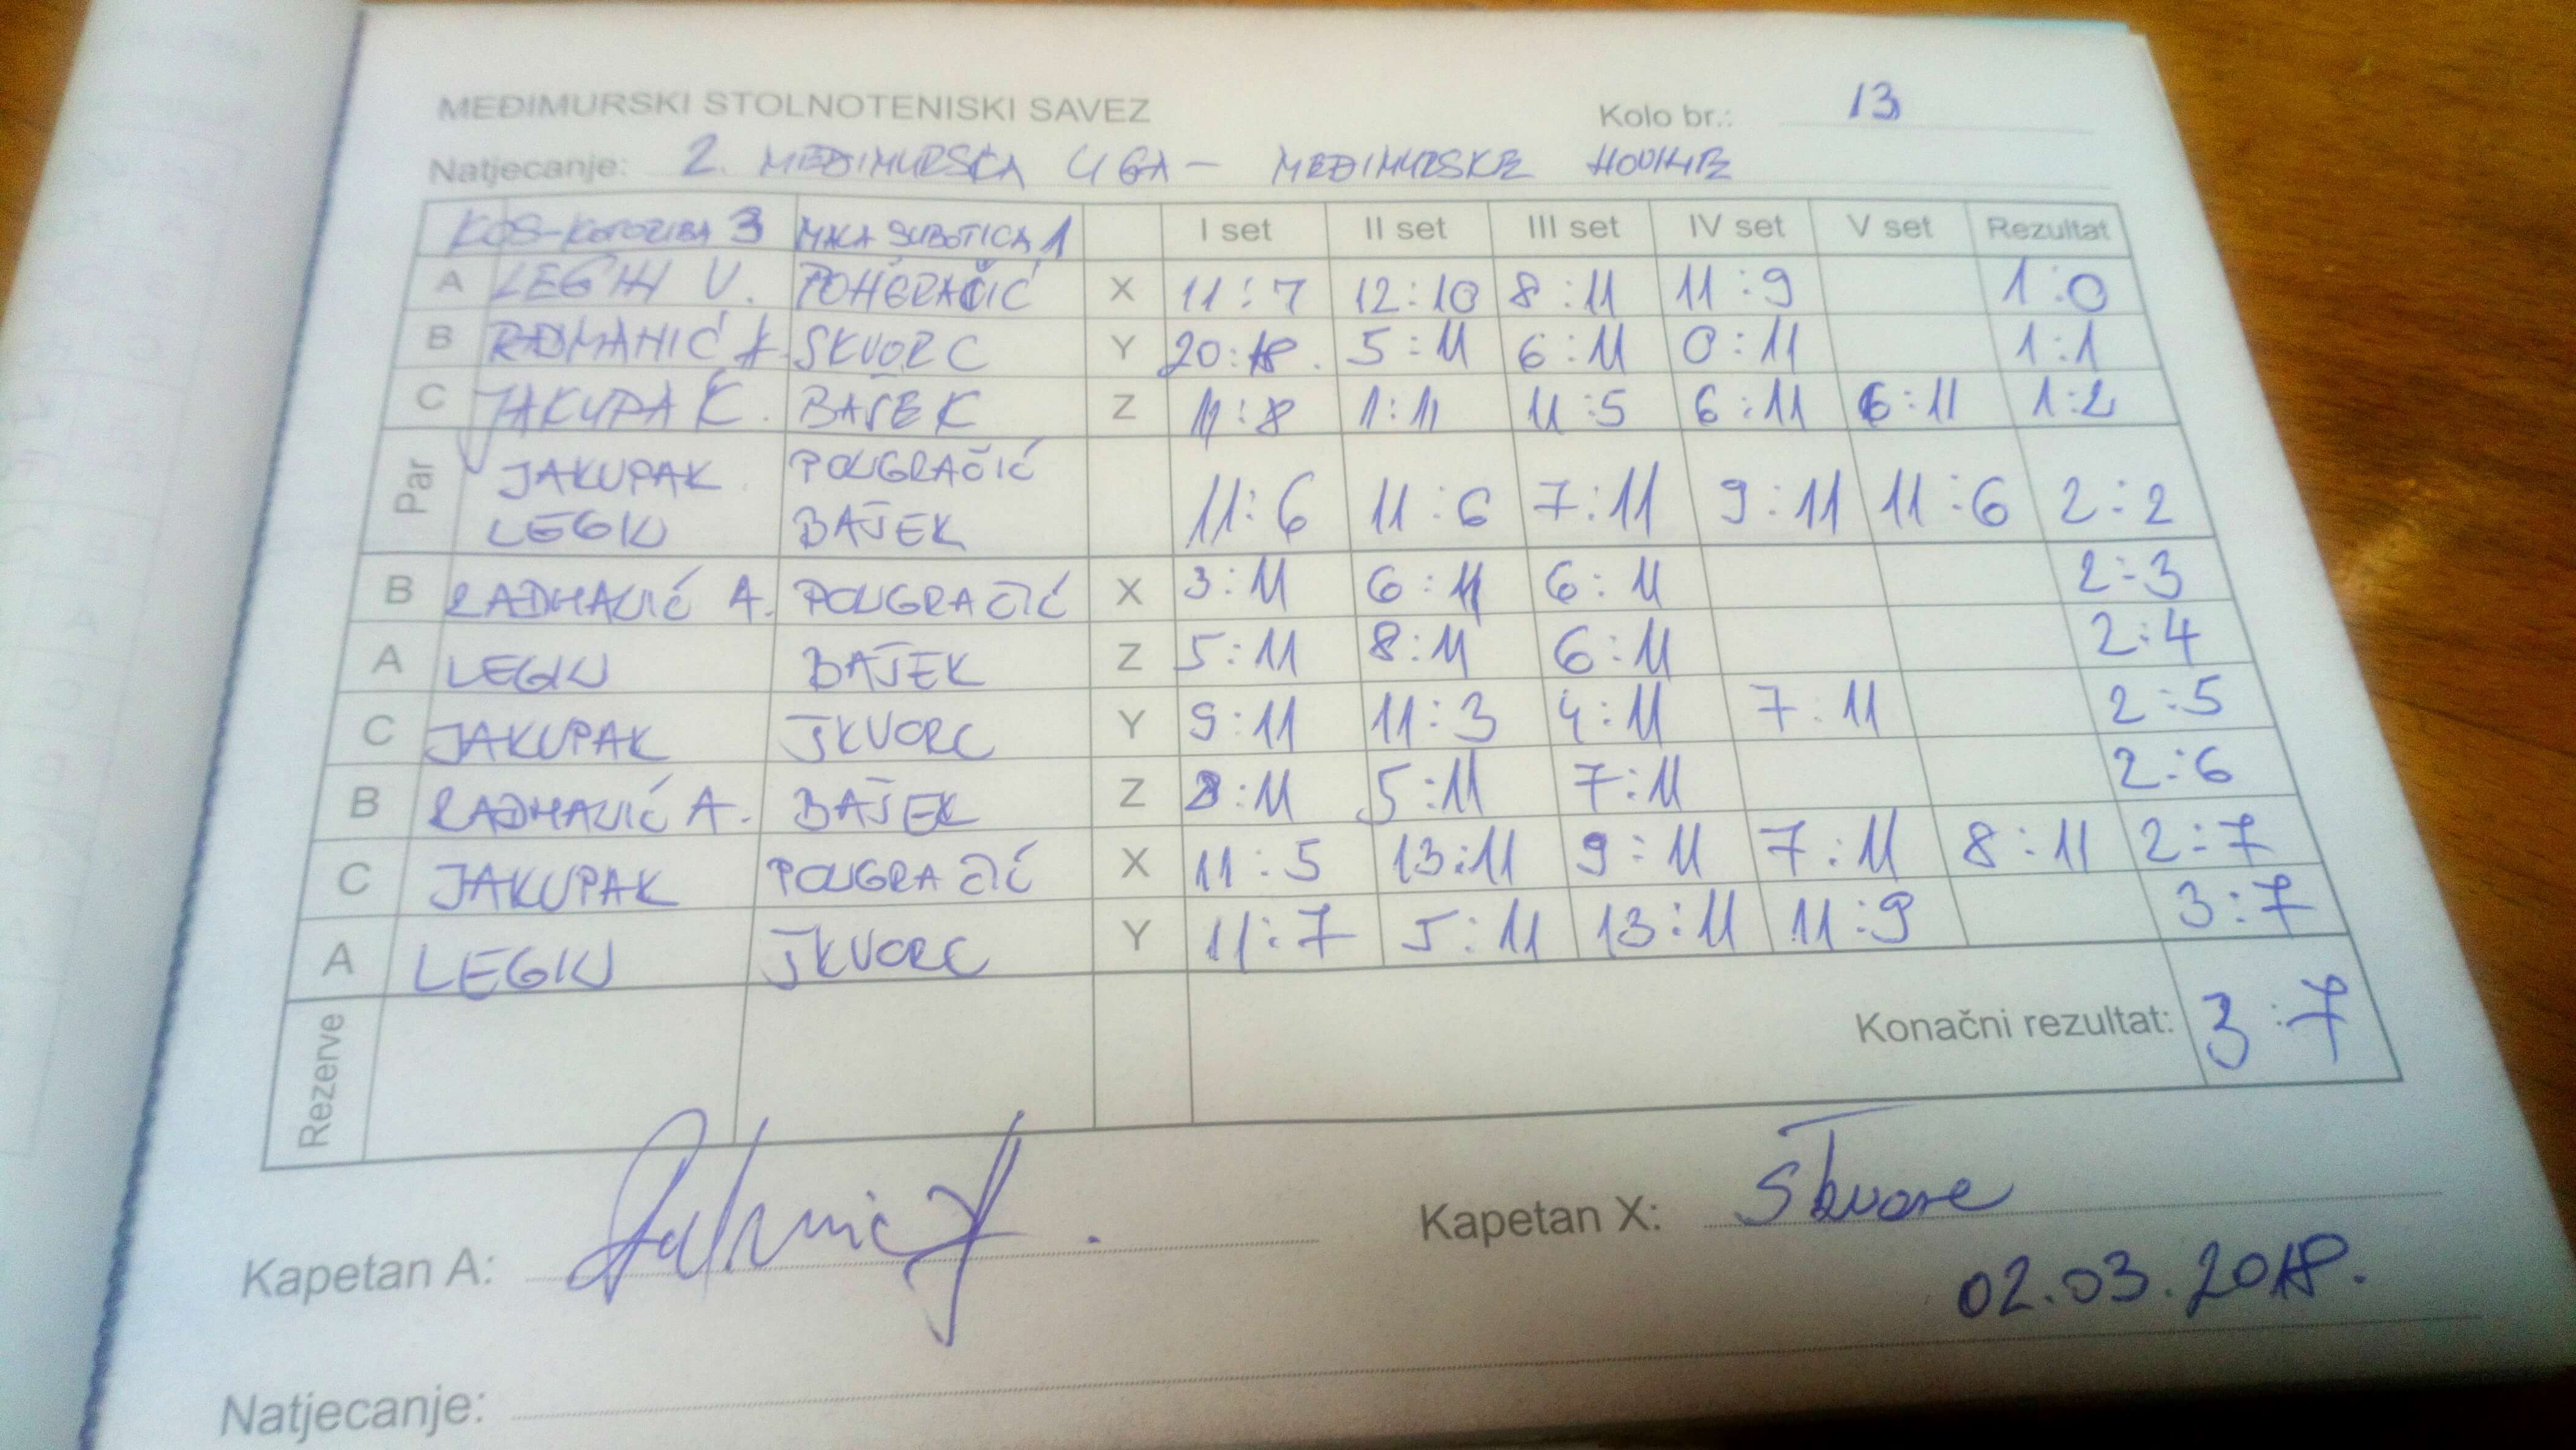 MEĐIMURSKI STOLNOTENISKI SAVEZ Kolo br.: 13
Natjecanje: 2. MEĐIMURSKA LIGA - MEĐIMURSKE NOVINE
KOS-KOTORIBA 3 MALA SUBOTICA 1 I set II set III set IV set V set Rezultat
A LEGIN V. PONGRAČIĆ X 11:7 12:10 8:11 11:9 1:0
B RADMANIĆ A. ŠKVORC Y 20:18. 5:11 6:11 0:11 1:1
C JAKUPAK. BAŠEK Z 11:8 1:11 11:5 6:11 6:11 1:2
Par JAKUPAK LEGIN PONGRAČIĆ BAŠEK 11:6 11:6 7:11 9:11 11:6 2:2
B RADMANIĆ A. PONGRAČIĆ X 3:11 6:11 6:11 2:3
A LEGIN BAŠEK Z 5:11 8:11 6:11 2:4
C JAKUPAK ŠKVORC Y 9:11 11:3 4:11 7:11 2:5
B RADMANIĆ A. BAŠEK Z 8:11 5:11 7:11 2:6
C JAKUPAK PONGRAČIĆ X 11:5 13:11 9:11 7:11 8:11 2:7
A LEGIN ŠKVORC Y 11:7 5:11 13:11 11:9 3:7
Rezerve Konačni rezultat: 3:7
Kapetan A: Kapetan X: Škvorc
02.03.2018.
Natjecanje: